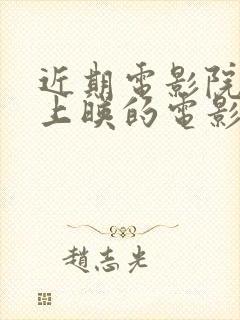 近期電影院
上映的電影
趙志光